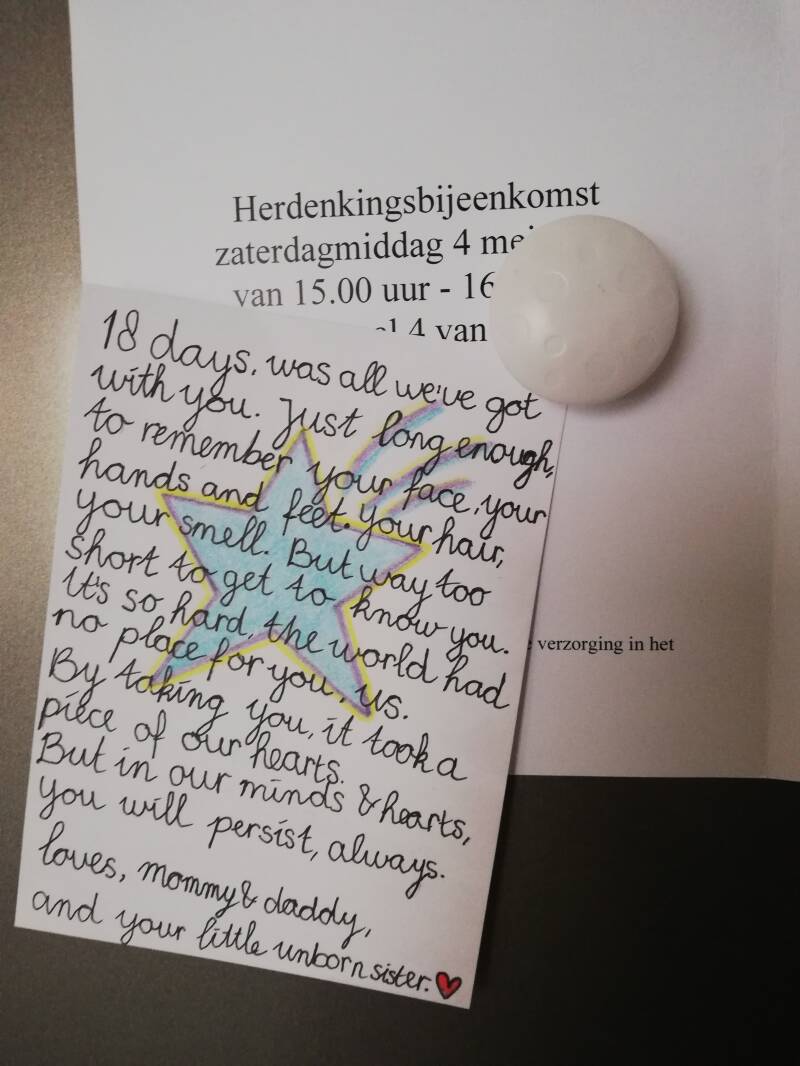 Herdenkingsbijeenkomst
zaterdagmiddag 4 mei
van 15.00 uur - 16
4 van
verzorging in het
18 days, was all we've got
with you. Just long enough,
to remember your face, your
hands and feet. your hair,
your smell. But way too
short to get to know you.
It's so hard, the world had
no place for you, us.
By taking you, it took a
piece of our hearts.
But in our minds & hearts,
you will persist, always.
loves, mommy & daddy,
and your little unborn sister.